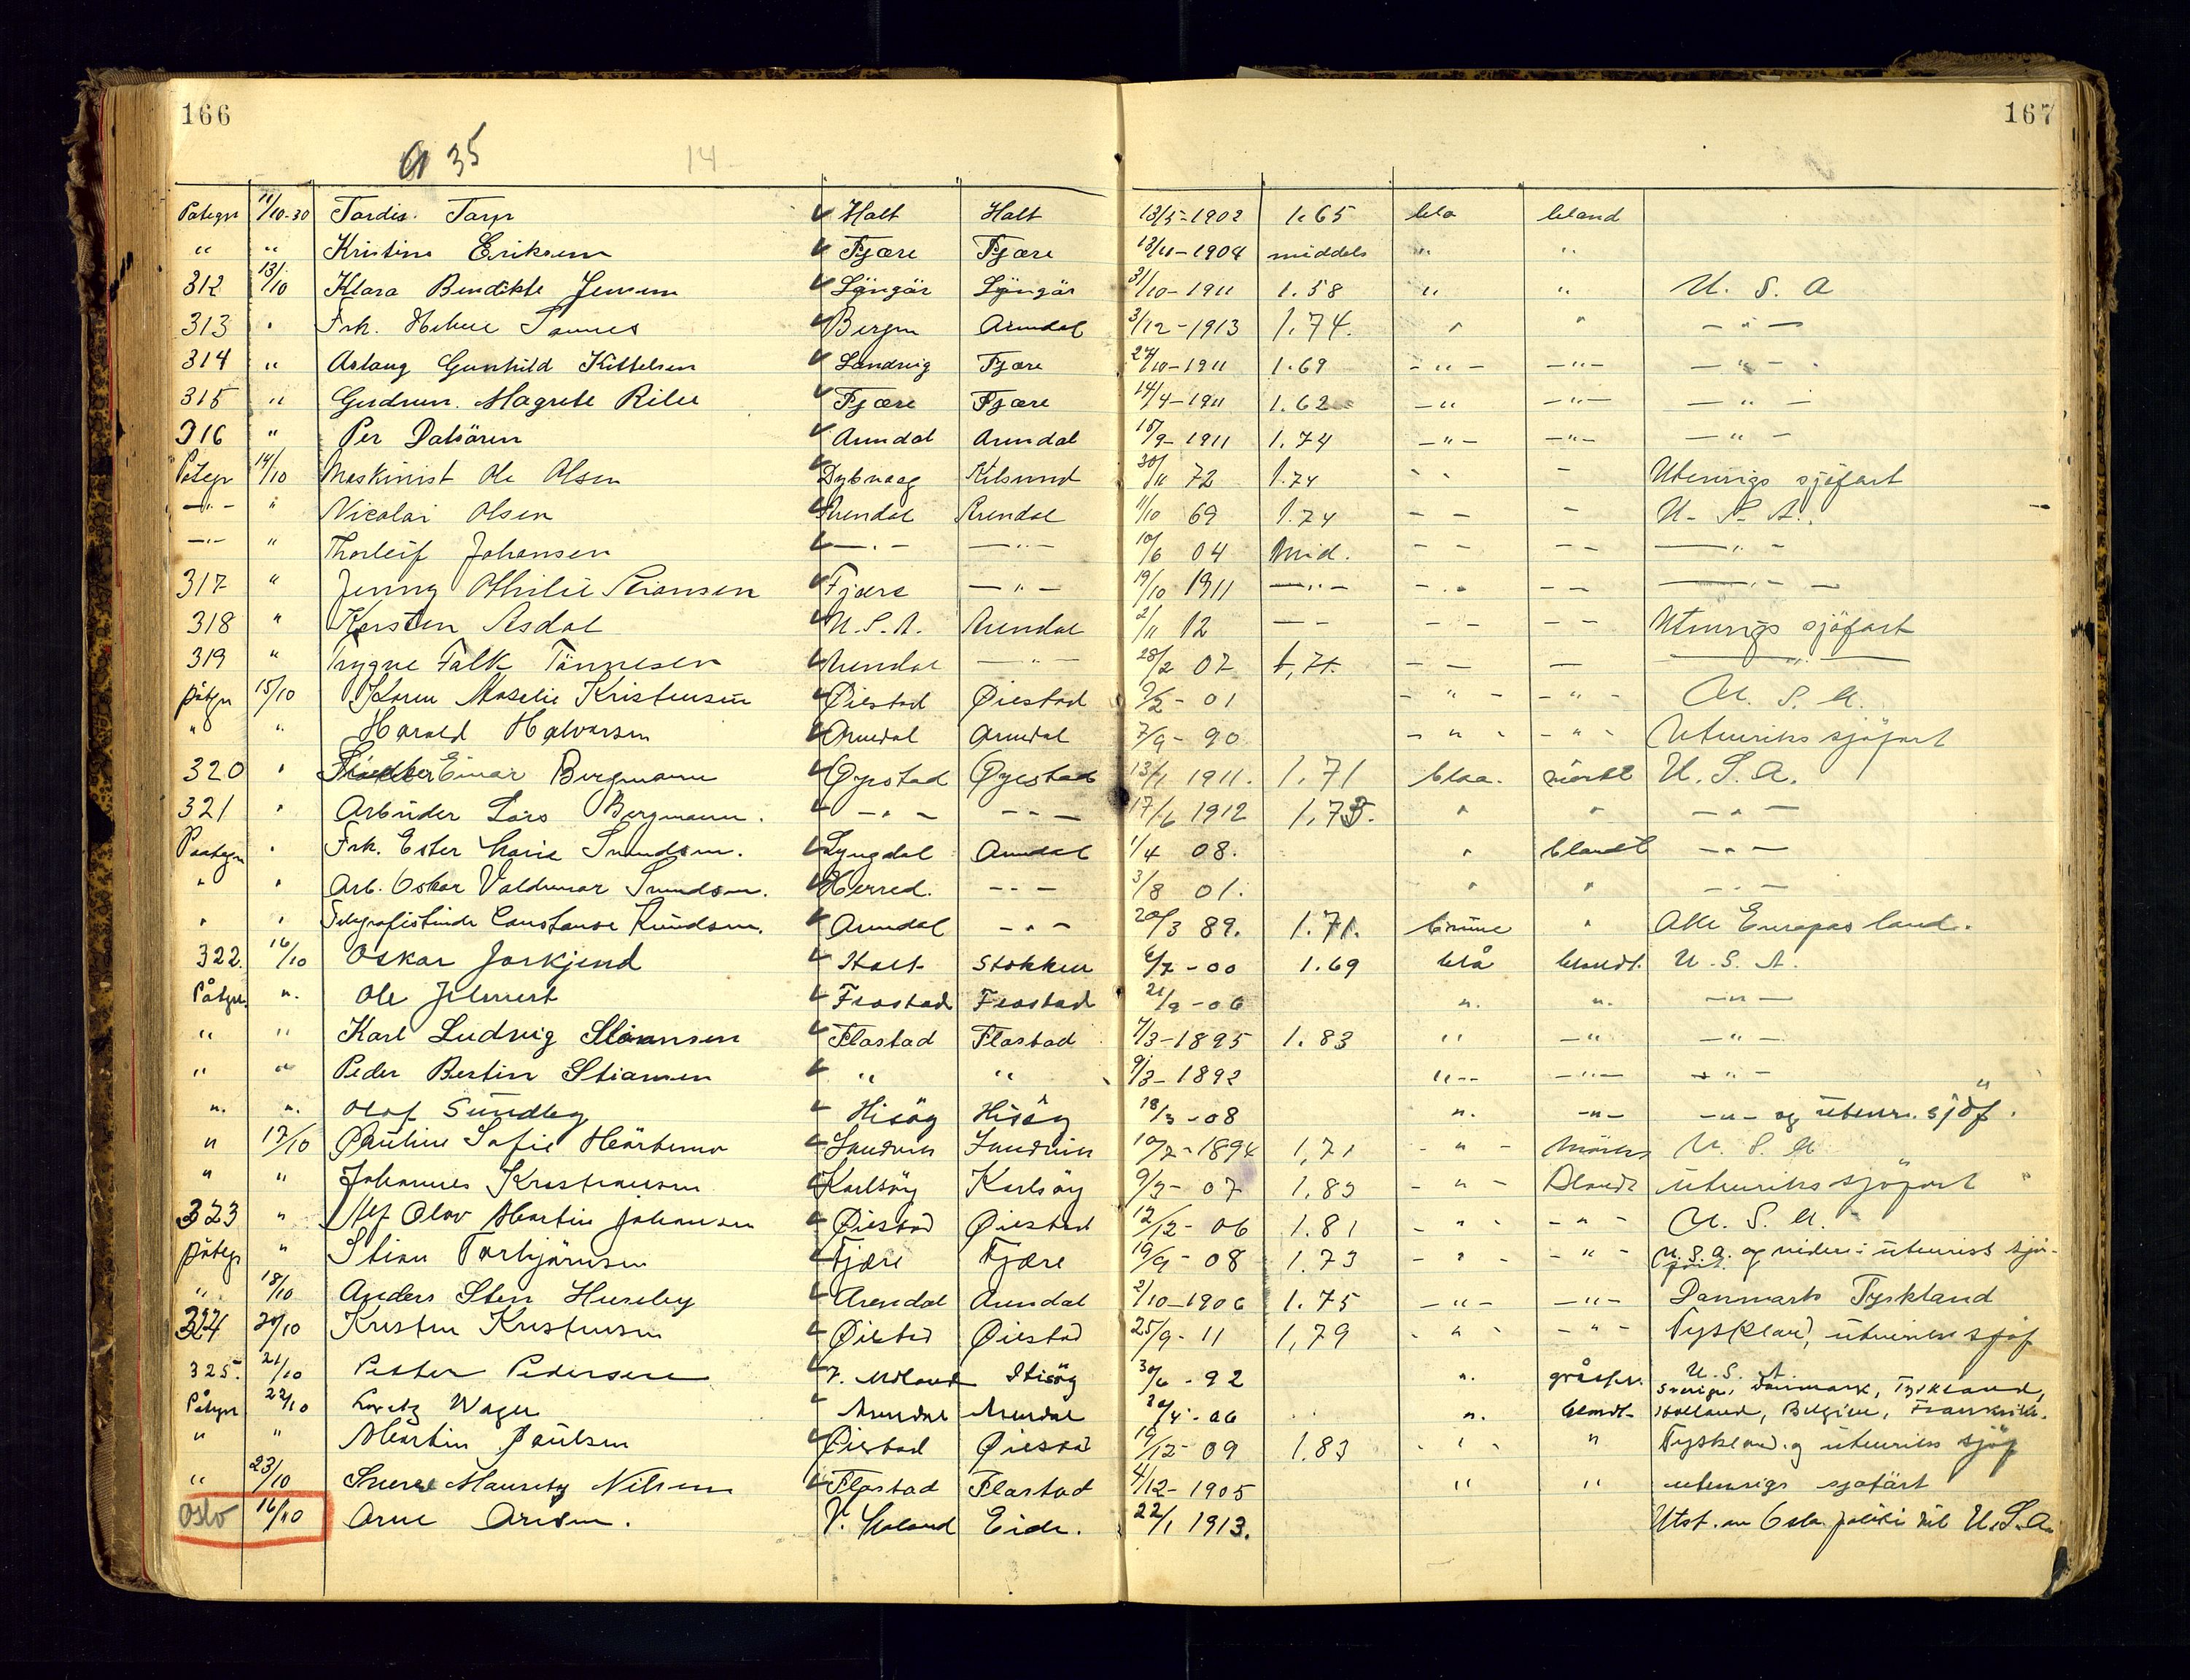 166
167
a 35
14
Påtegn 11/10-30 Tordis Tarp Holt Holt 13/5-1902 1.65 bla bland
" " Kristine Eriksen Fjære Fjære 13/10-1904 middels " "
312 13/10 Klara Bendikte Jensen Lyngør Lyngør 31/10-1911 1.58 " " U. S. A
313 " Frk. Helene Bergen Arendal 3/12-1913 1.74. " " — " —
314 " Aslaug Gunhild Kittelsen Landvig Fjære 27/10-1911 1.69 - " - - " - — " -
315 " Gudrun Magrete Fjære Fjære 14/4-1911 1.62 - " - " - — " —
316 " Per Arendal Arendal 15/9-1911 1.74 - " - - " - — " -
Påtegn 14/10 Maskinist Ole Olsen Dybvaag Kilsund 30/11 72 1.74 - - Utenrigs sjöfart
- " - " Nicolai Olsen Arendal Arendal 11/10 69 1.74 - - - U. S. A.
- " - " Thorleif Johansen - " - - " - 10/6 04 Mid. - - - - — " -
317 " Jenny Othilie Fjære - " - 19/10 1911 - " - - " - - - — " —
318 " Karsten Asdal U. S. A. Arendal 2/11 12 - - - - - - Utenrigs sjöfart
319 " Trygve Falk Tönnesen Arendal - " - 28/2 07 1,71. - - - — " —
påtgn 15/10 Karen Kristensen Öiestad Öiestad 9/2 - 01 - " - - " - U. S. A.
" " Harald Halvorsen Arendal Arendal 7/9 - 90 - " - - " - Utenriks sjöfart
320 " Einar Bergmann Öyestad Öyestad 13/1 1911. 1.71 blaa. mörkt U. S. A.
321 " Arbeider Lars Bergmann. - " - - - - 17/6 1912 1,73. " " - " -
Paategn " Frk. Ester Marie Lyngdal Arendal 1/4 08. " blondt - " -
" " Arb. Oskar Valdemar Herred. - - - 3/8 01. " " - - -
" " Telegrafistinde Constanse Knudsen. Arendal - " - 20/3 89. 1.71. brune " Alle Europas land.
322. 16/10 Oskar Jorkjend Holt Stokken 6/7 - 00 1.69 blå blondt. U. S. A.
Påtgn. " Ole Flostad Flostad 21/9 - 06 " " - " -
" " Karl Ludvig Stiansen Flostad Flostad 7/3-1895 1.83 " - " - " -
" " Peder Bertin Stiansen " " 9/3-1892 " - - " - - " -
" " Olaf Sundby Hisöy Hisöy 18/3 - 08 " - " - - " - og utenr. sjöf.
" 17/10 Pauline Sofie 10/7-1894 1,71 - " - U. S. A
" " Johannes Kristiansen Karlsöy Karlsöy 9/3 - 07 1.83 - " - Blondt utenriks sjöfart "
323 " Alf Olav Martin Johansen Öiestad Öiestad 12/12 - 06 1.81 - " - - " - U. S. A.
påtegn " Stian Torbjörnsen Fjære Fjære 19/9 - 08 1.73 - " - - " - U. S. A. og videre i utenriks sjö-
fart.
" 18/10 Anders Sten Huseby Arendal Arendal 2/10-1906 1.75 - " - - " - Danmark Tyskland
324 20/10 Kristen Kristensen Öiestad Öiestad 25/9 - 11 1,79 - " - - " - Tyskland, utenriks sjöf
325. 21/10 Petter Pedersen V. Moland Hisöy 30/6 - 92 " gråspr. U. S. A.
Påtgn 22/10 Lovitz Wager Arendal Arendal 30/4 - 06 " blondt Sverige, Danmark, Tyskland,
Holland, Belgien, Frankrike.
" " Martin Paulsen Öiestad Öiestad 19/12 - 09 1.83 - " - " Tyskland og utenriks sjöf
" 23/10 Sverre Mauritz Nilsen Flostad Flostad 4/12-1905 " " utenrigs sjøfart
Oslo 16/10 Arne Aresen. V. Moland Eide. 22/1 1913. Utst. av Oslo politi til U. S. A.